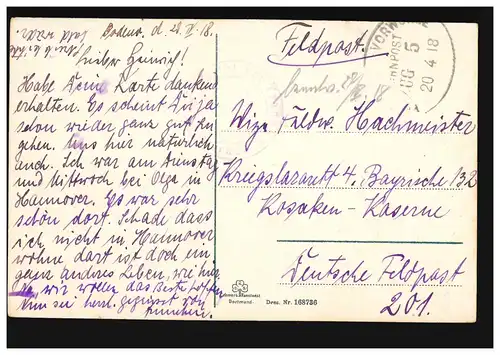 Bodenw. d. 20. IV. 18.
Lieber Heinrich!
Habe Deine Karte dankend
erhalten. Es scheint Dir ja
schon wieder ganz gut zu
gehen. Uns hier natürlich
auch. Ich war am Dienstag
und Mittwoch bei Olga in
Hannover. Es war sehr
schön dort. Schade dass
ich nicht in Hannover
wohne dort ist doch ein
ganz anderes Leben, wie hier
wir wollen das Beste hoffen
Nun sei herzl. gegrüsst von
Feldpost.
VORWO
BAHNPOST
ZUG 5
20 4 18
Vize Feldw. Hachmeister
Kriegslazarett 4. Bayrische 132
Kosaken-Kaserne
Deutsche Feldpost
201.
Dortmund.
Drcs. Nr. 168736